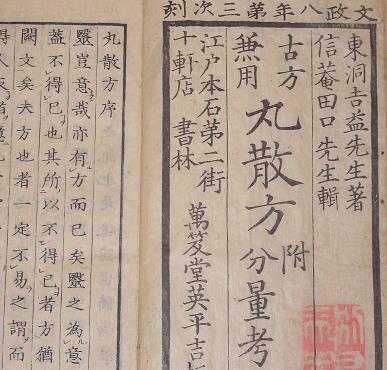 文政八年第三次刻
東洞吉益先生著
信菴田口先生輯
古方
兼用
丸散方
附
分量考
江戸本石第二街
十軒店
書林
萬笈堂英平吉
丸散方序
毉豈意哉亦有方而已矣毉之為意
蓋不得已也其所以不得已者方猶
闕文矣夫方也者一定不易之謂而